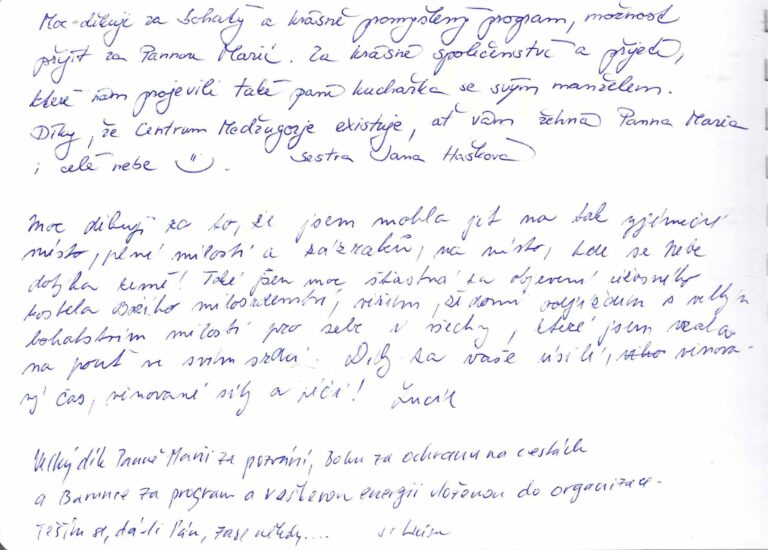 Moc děkuji za bohatý a krásně promyšlený program, možnost
přijít za Pannou Marií. Za krásné společenství a přijetí,
které nám projevili také paní kuchařka se svým manželem.
Díky, že Centrum Medžugorje existuje, ať vám žehná Panna Maria
i celé nebe. sestra Jana Hašková
Moc děkuji za to, že jsem mohla jet na tak výjimečné
místo, plné milostí a zázraků, na místo, kde se nebe
dotýká země! Také jsem moc šťastná za objevení úžasného
kostela Božího milosrdenství, věřím, že domů odjíždím s velkým
bohatstvím milostí pro sebe i všechny, které jsem vzala
na pouť ve svém srdci. Díky za vaše úsilí, věnova-
ný čas, věnované síly a péči!
Velký dík Panně Marii za pozvání, Bohu za ochranu na cestách
a Barunce za program a veškerou energii vloženou do organizace.
Těším se, dá-li Pán, zase někdy....